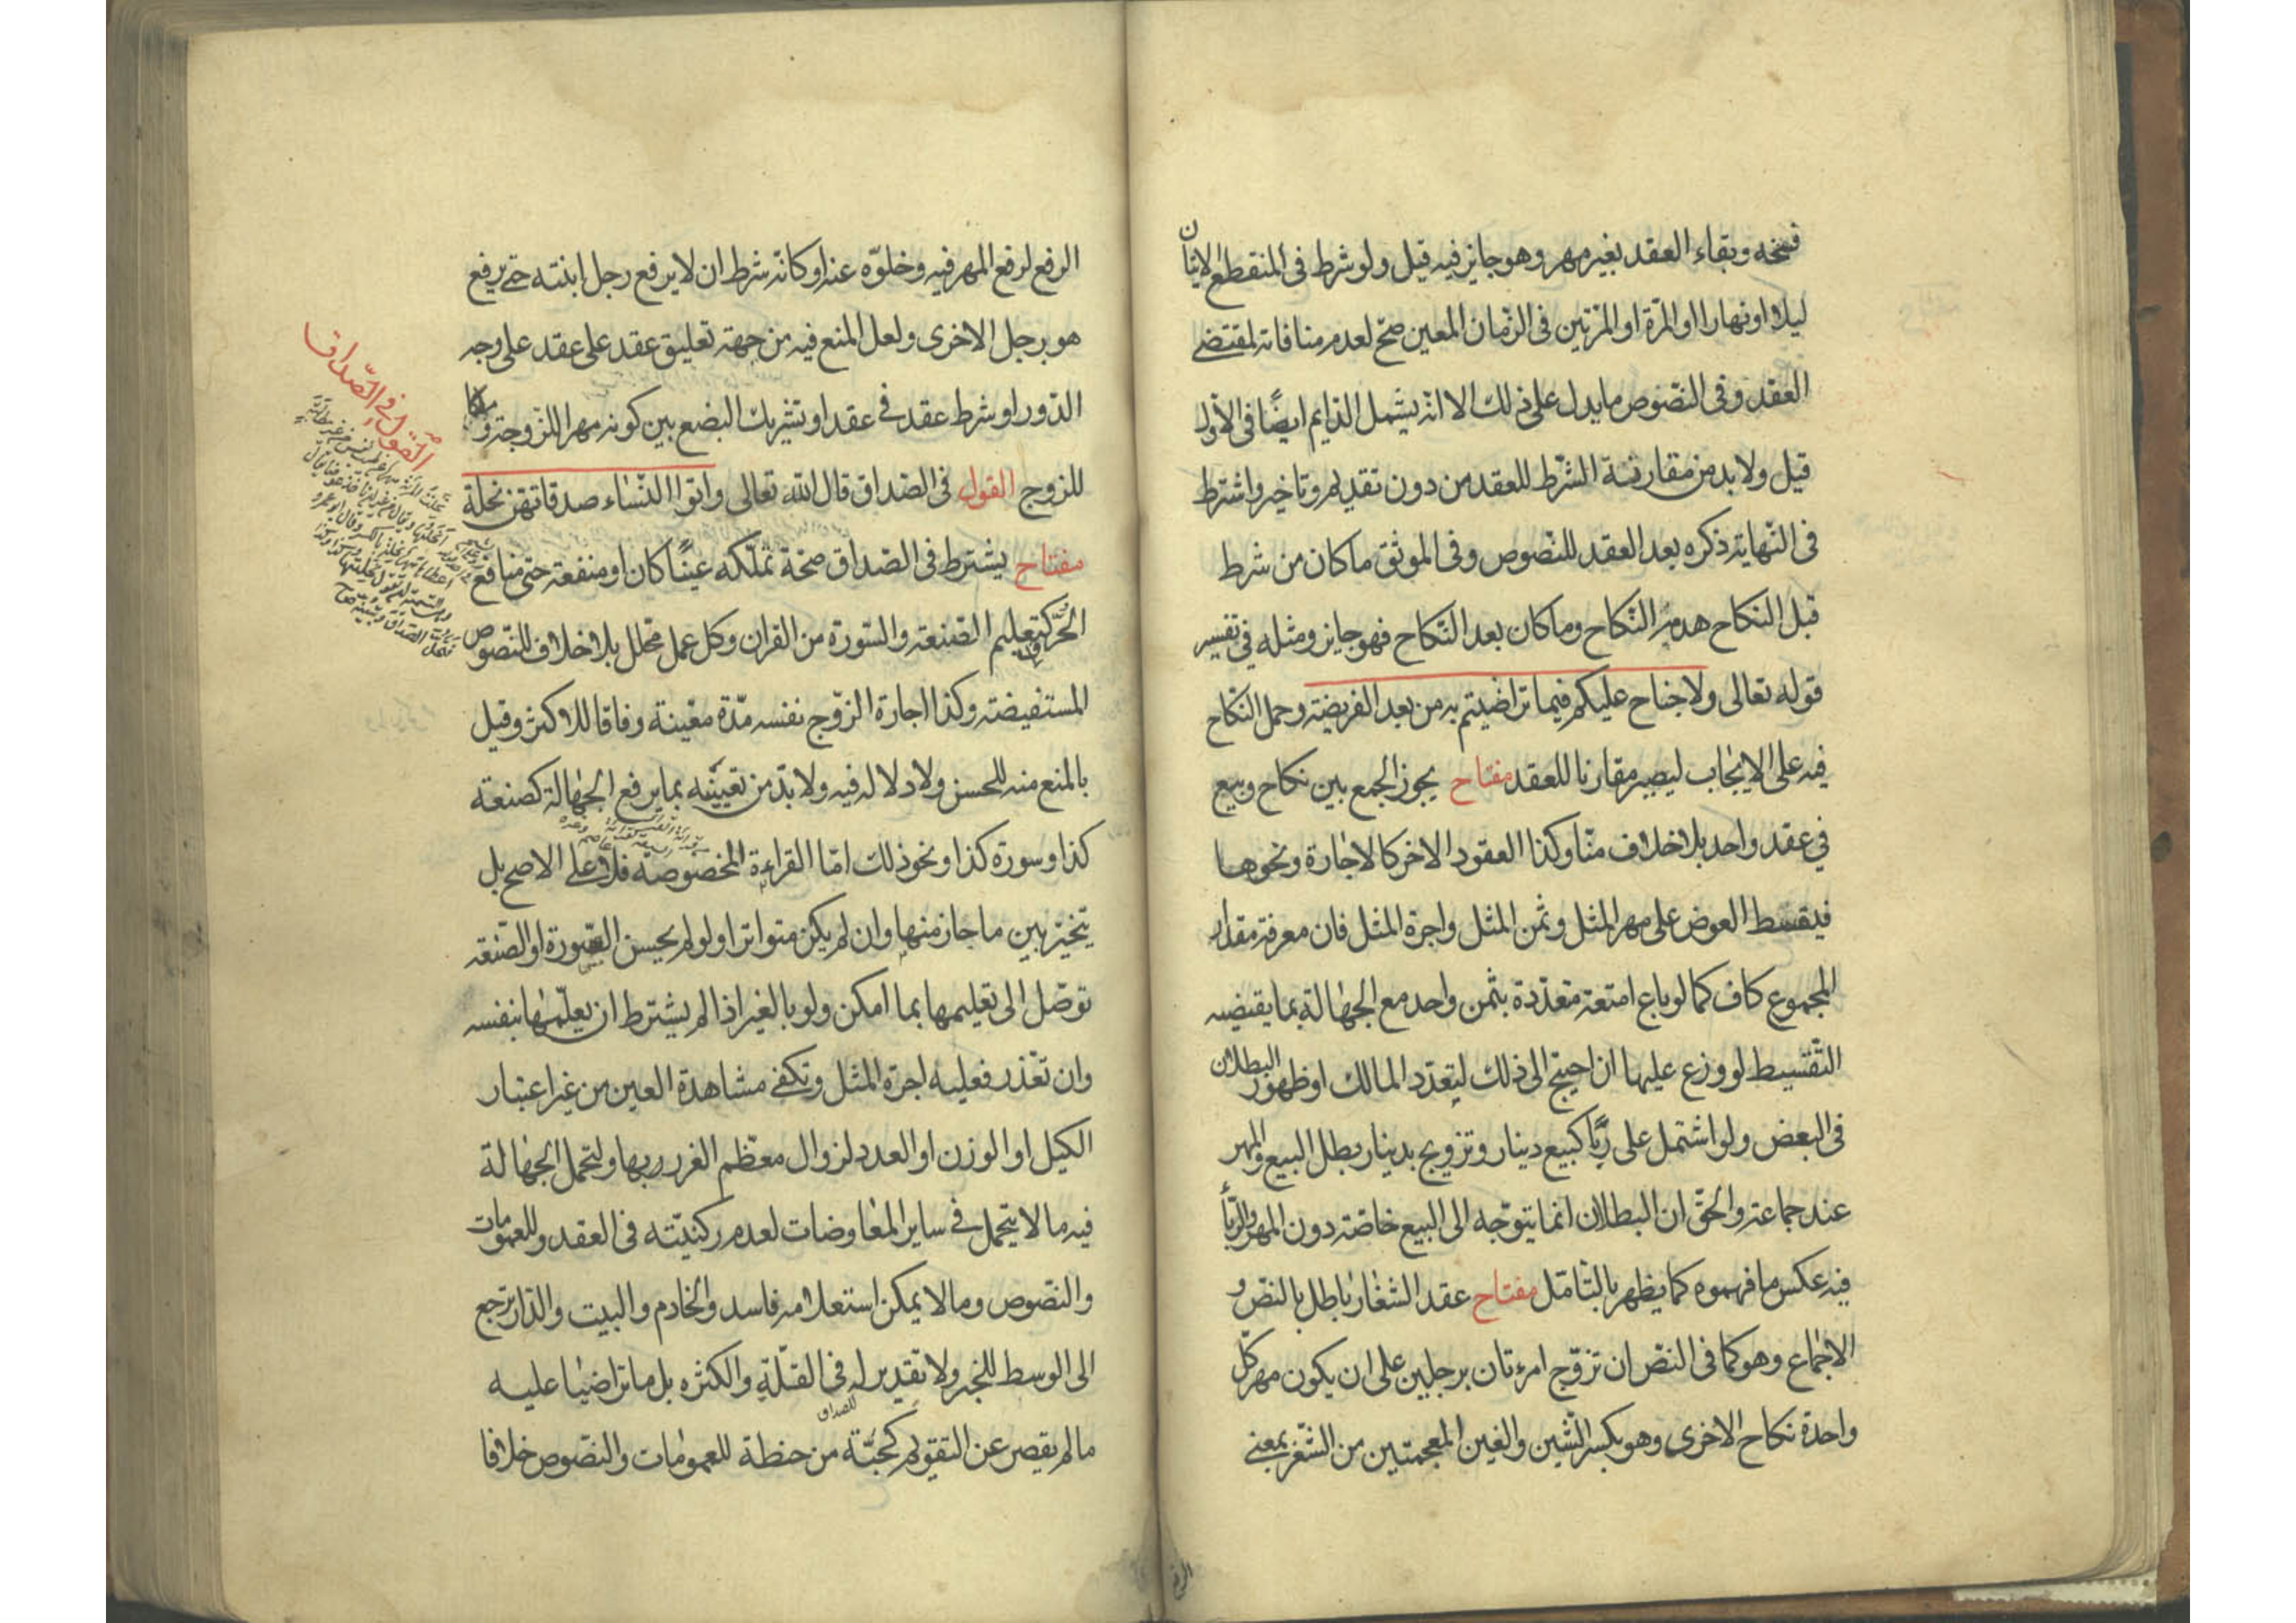 فسخه وبقاء العقد بغير مهر وهو جايز فيه قيل ولو شرط فى المنقطع الاتيان
ليلا او نهارا او المرة او المرتين فى الزمان المعين صحّ لعدم منافاته لمقتضى
العقد وفى النصوص ما يدل على ذلك الا انه يشمل الدايم ايضًا فى الاول
قيل ولا بد من مقارنة الشرط للعقد من دون تقديم وتاخير واشترط
فى النهاية ذكره بعد العقد للنصوص وفى الموثق ما كان من شرط
قبل النكاح هدمه النكاح وما كان بعد النكاح فهو جايز ومثله فى تفسير
قوله تعالى ولا جناح عليكم فيما تراضيتم به من بعد الفريضة وحمل النكاح
فيه على الايجاب ليصير مقارنا للعقد مفتاح يجوز الجمع بين نكاح وبيع
فى عقد واحد بلا خلاف منّا وكذا العقود الاخر كالاجارة ونحوها
فيقسط العوض على مهر المثل وثمن المثل واجرة المثل فان معرفة مقدار
المجموع كاف كما لو باع امتعة متعدّدة بثمن واحد مع الجهالة بما يقتضيه
التقسيط لو وزع عليها ان احتيج الى ذلك ليتعدّد المالك او ظهور البطلان
فى البعض ولو اشتمل على ربًا كبيع دينار وتزويج بدينار بطل البيع والمهر
عند جماعة والحقّ ان البطلان انما يتوجّه الى البيع خاصّة دون المهر والربا
فيه عكس ما فهموه كما يظهر بالتامّل مفتاح عقد الشغار باطل بالنصّ و
الاجماع وهو كما فى النصّ ان تزوّج امرءتان برجلين على ان يكون مهر كلّ
واحدة نكاح الاخرى وهو بكسر الشين والغين المعجمتين من الشغر بمعنى
الرفع لرفع المهر فيه وخلوّه عنه او كانّه شرط ان لا يرفع رجل ابنته حتى يرفع
هو برجل الاخرى ولعل المنع فيه من جهة تعليق عقد على عقد على وجه
الدّور او شرط عقد فى عقد او تشريك البضع بين كونه مهرا للزوجة وملكا
للزوج القول فى الصداق قال الله تعالى واتوا النساء صدقاتهن نحلة
مفتاح يشترط فى الصداق صحّة تملّكه عينًا كان او منفعة حتى منافع
الحرّ كتعليم الصنعة والسورة من القران وكل عمل محلل بلا خلاف للنصوص
المستفيضة وكذا اجارة الزوج نفسه مدّة معيّنة وفاقا للاكثر وقيل
بالمنع منه للحسن ولا دلالة فيه ولا بدّ من تعيينه بما يرفع الجهالة كصنعة
كذا وسورة كذا ونحو ذلك امّا القراءة المخصوصة فلا على الاصح بل
يتخيّر بين ما جاز منها وان لم يكن متواترا ولو لم يحسن السورة او الصنعة
توصّل الى تعليمها بما امكن ولو بالغير اذا لم يشترط ان يعلّمها بنفسه
وان تعذّر فعليه اجرة المثل وتكفى مشاهدة العين من غير اعتبار
الكيل او الوزن او العدد لزوال معظم الغرر بها ولتحمل الجهالة
فيه ما لا يتحمل فى ساير المعاوضات لعدم ركنيّته فى العقد وللعمومات
والنصوص وما لا يمكن استعلامه فاسد والخادم والبيت والدار يرجع
الى الوسط للخبر ولا تقدير له فى القلّة والكثره بل ما تراضيا عليه
للصداق
ما لم يقصر عن التقويم كحبّة من حنطة للعمومات والنصوص خلافا
القول فى الصّداق
الرفع